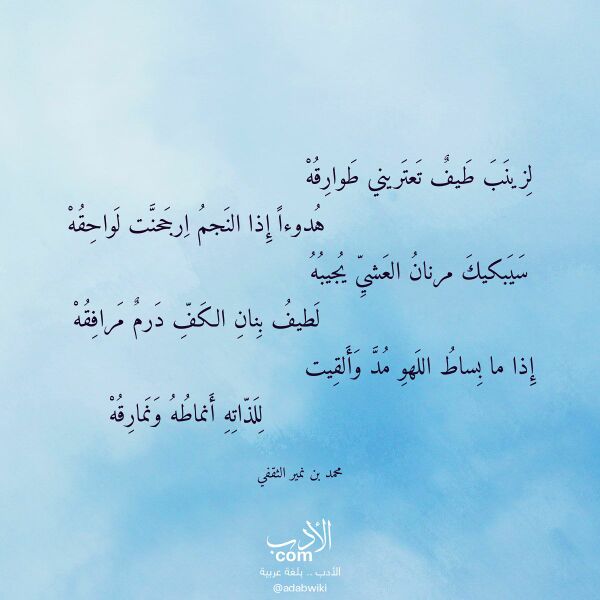 لِزينَبَ طَيفٌ تَعتَريني طَوارِقُهْ
هُدوءاً إِذا النَجمُ اِرجَحنَّت لَواحِقُهْ
سَيَبكيكَ مرنانُ العَشيِّ يُجيبُهُ
لَطيفُ بِنانِ الكَفِّ دَرمٌ مَرافِقُهْ
إِذا ما بِساطُ اللَهوِ مُدَّ وَأَلقِيت
لِلَذّاتِهِ أَنماطُهُ وَنَمارِقُهْ
محمد بن نمير الثقفي
الأدب
com
الأدب .. بلغة عربية
@adabwiki